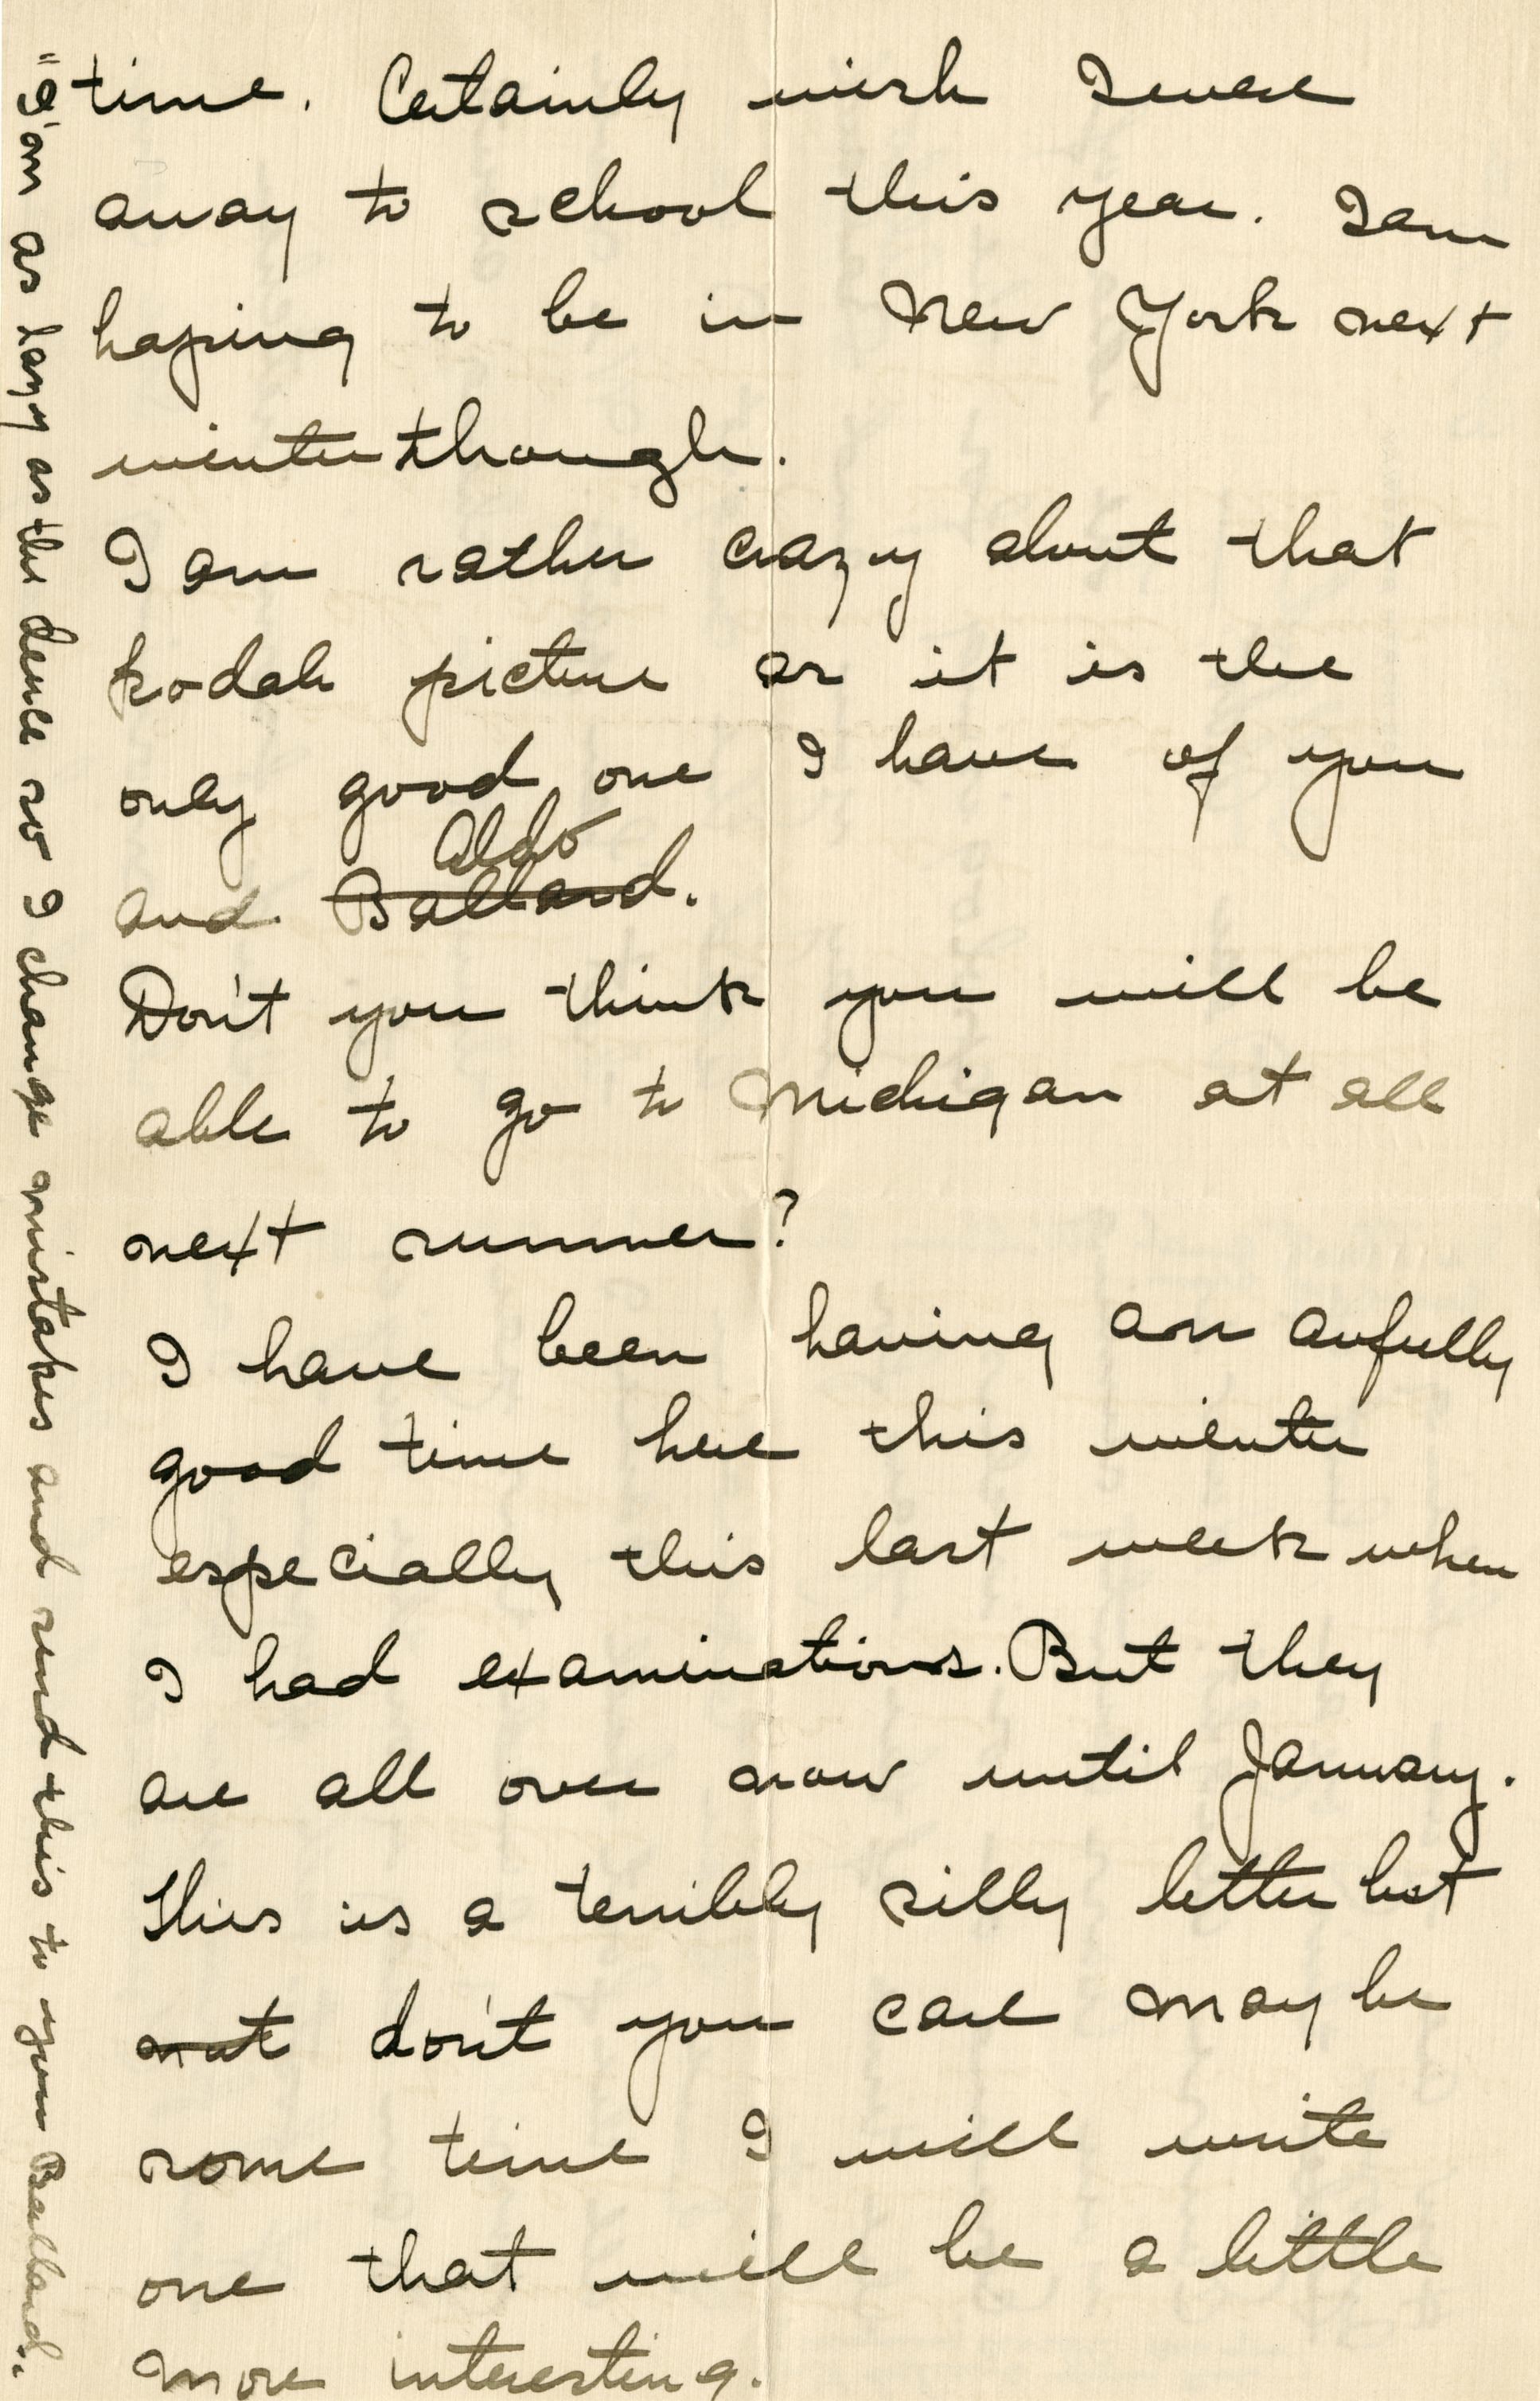 time. Certainly wish I were
away to school this year. I am
hoping to be in New York next
winter though.
I am rather crazy about that
kodak picture as it is the
only good one I have of you
Aldo
and Ballard.
Don't you think you will be
able to go to Michigan at all
next summer?
I have been having an awfully
good time here this winter
especially this last week when
I had examinations. But they
are all over now until January.
This is a terribly silly letter but
not don't you care may be
some time I will write
one that will be a little
more interesting.
"I'm as lazy as the deuce so I change mistakes and send this to you Ballard.